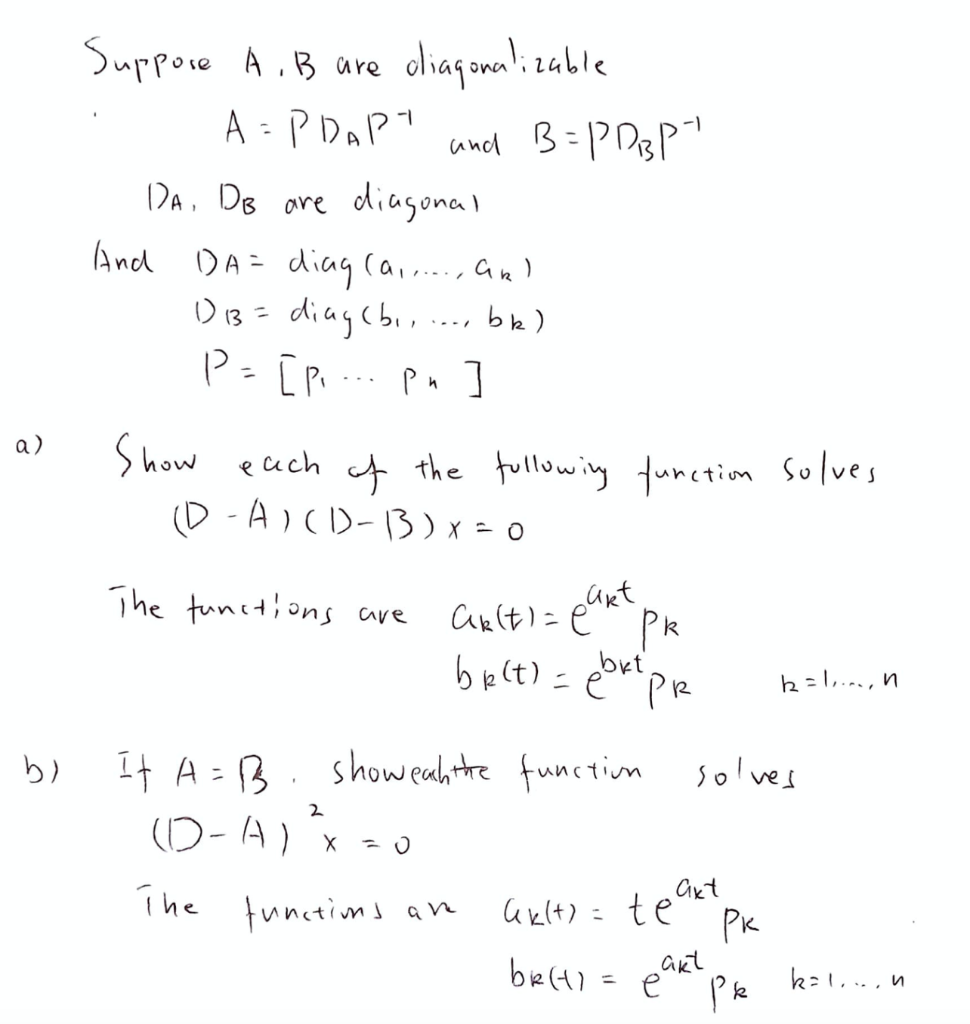 Suppose A, B are diagonalizable
A = P D_A P^-1 and B = P D_B P^-1
D_A, D_B are diagonal
And D_A = diag (a_1, ...., a_k)
D_B = diag (b_1, ...., b_k)
P = [ p_1 ... p_n ]
a) Show each of the following function solves
(D - A) (D - B) x = 0
The functions are a_k(t) = e^{a_k t} p_k
b_k(t) = e^{b_k t} p_k k = 1, ...., n
b) If A = B, show each the function solves
(D - A)^2 x = 0
The functions are a_k(t) = t e^{a_k t} p_k
b_k(t) = e^{a_k t} p_k k = 1, ..., n